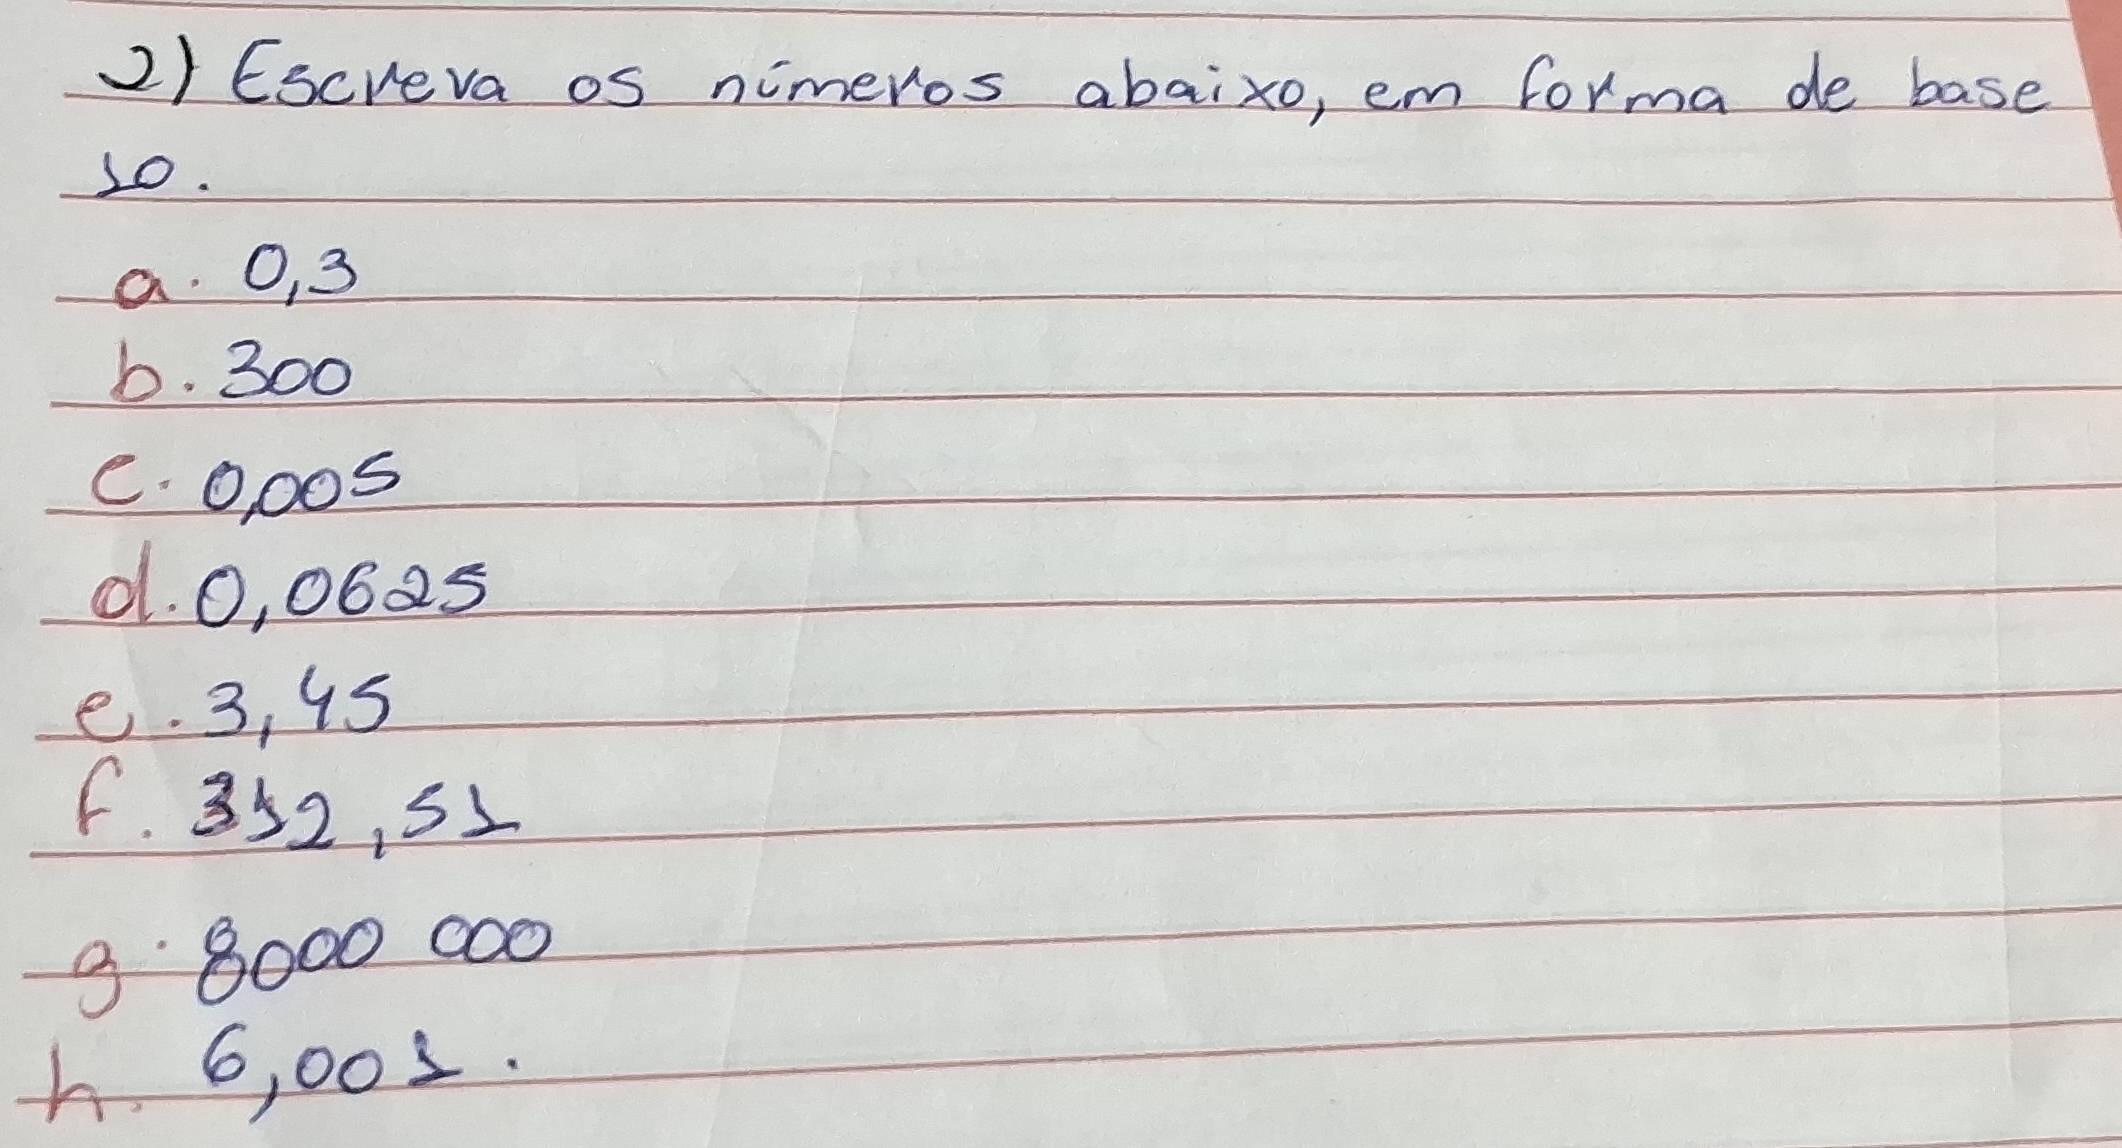 2) Escreva os números abaixo, em forma de base
10.
a. 0,3
b. 300
c. 0,005
d. 0,0625
e. 3,45
f. 312,51
g. 8000 000
h. 6,001.